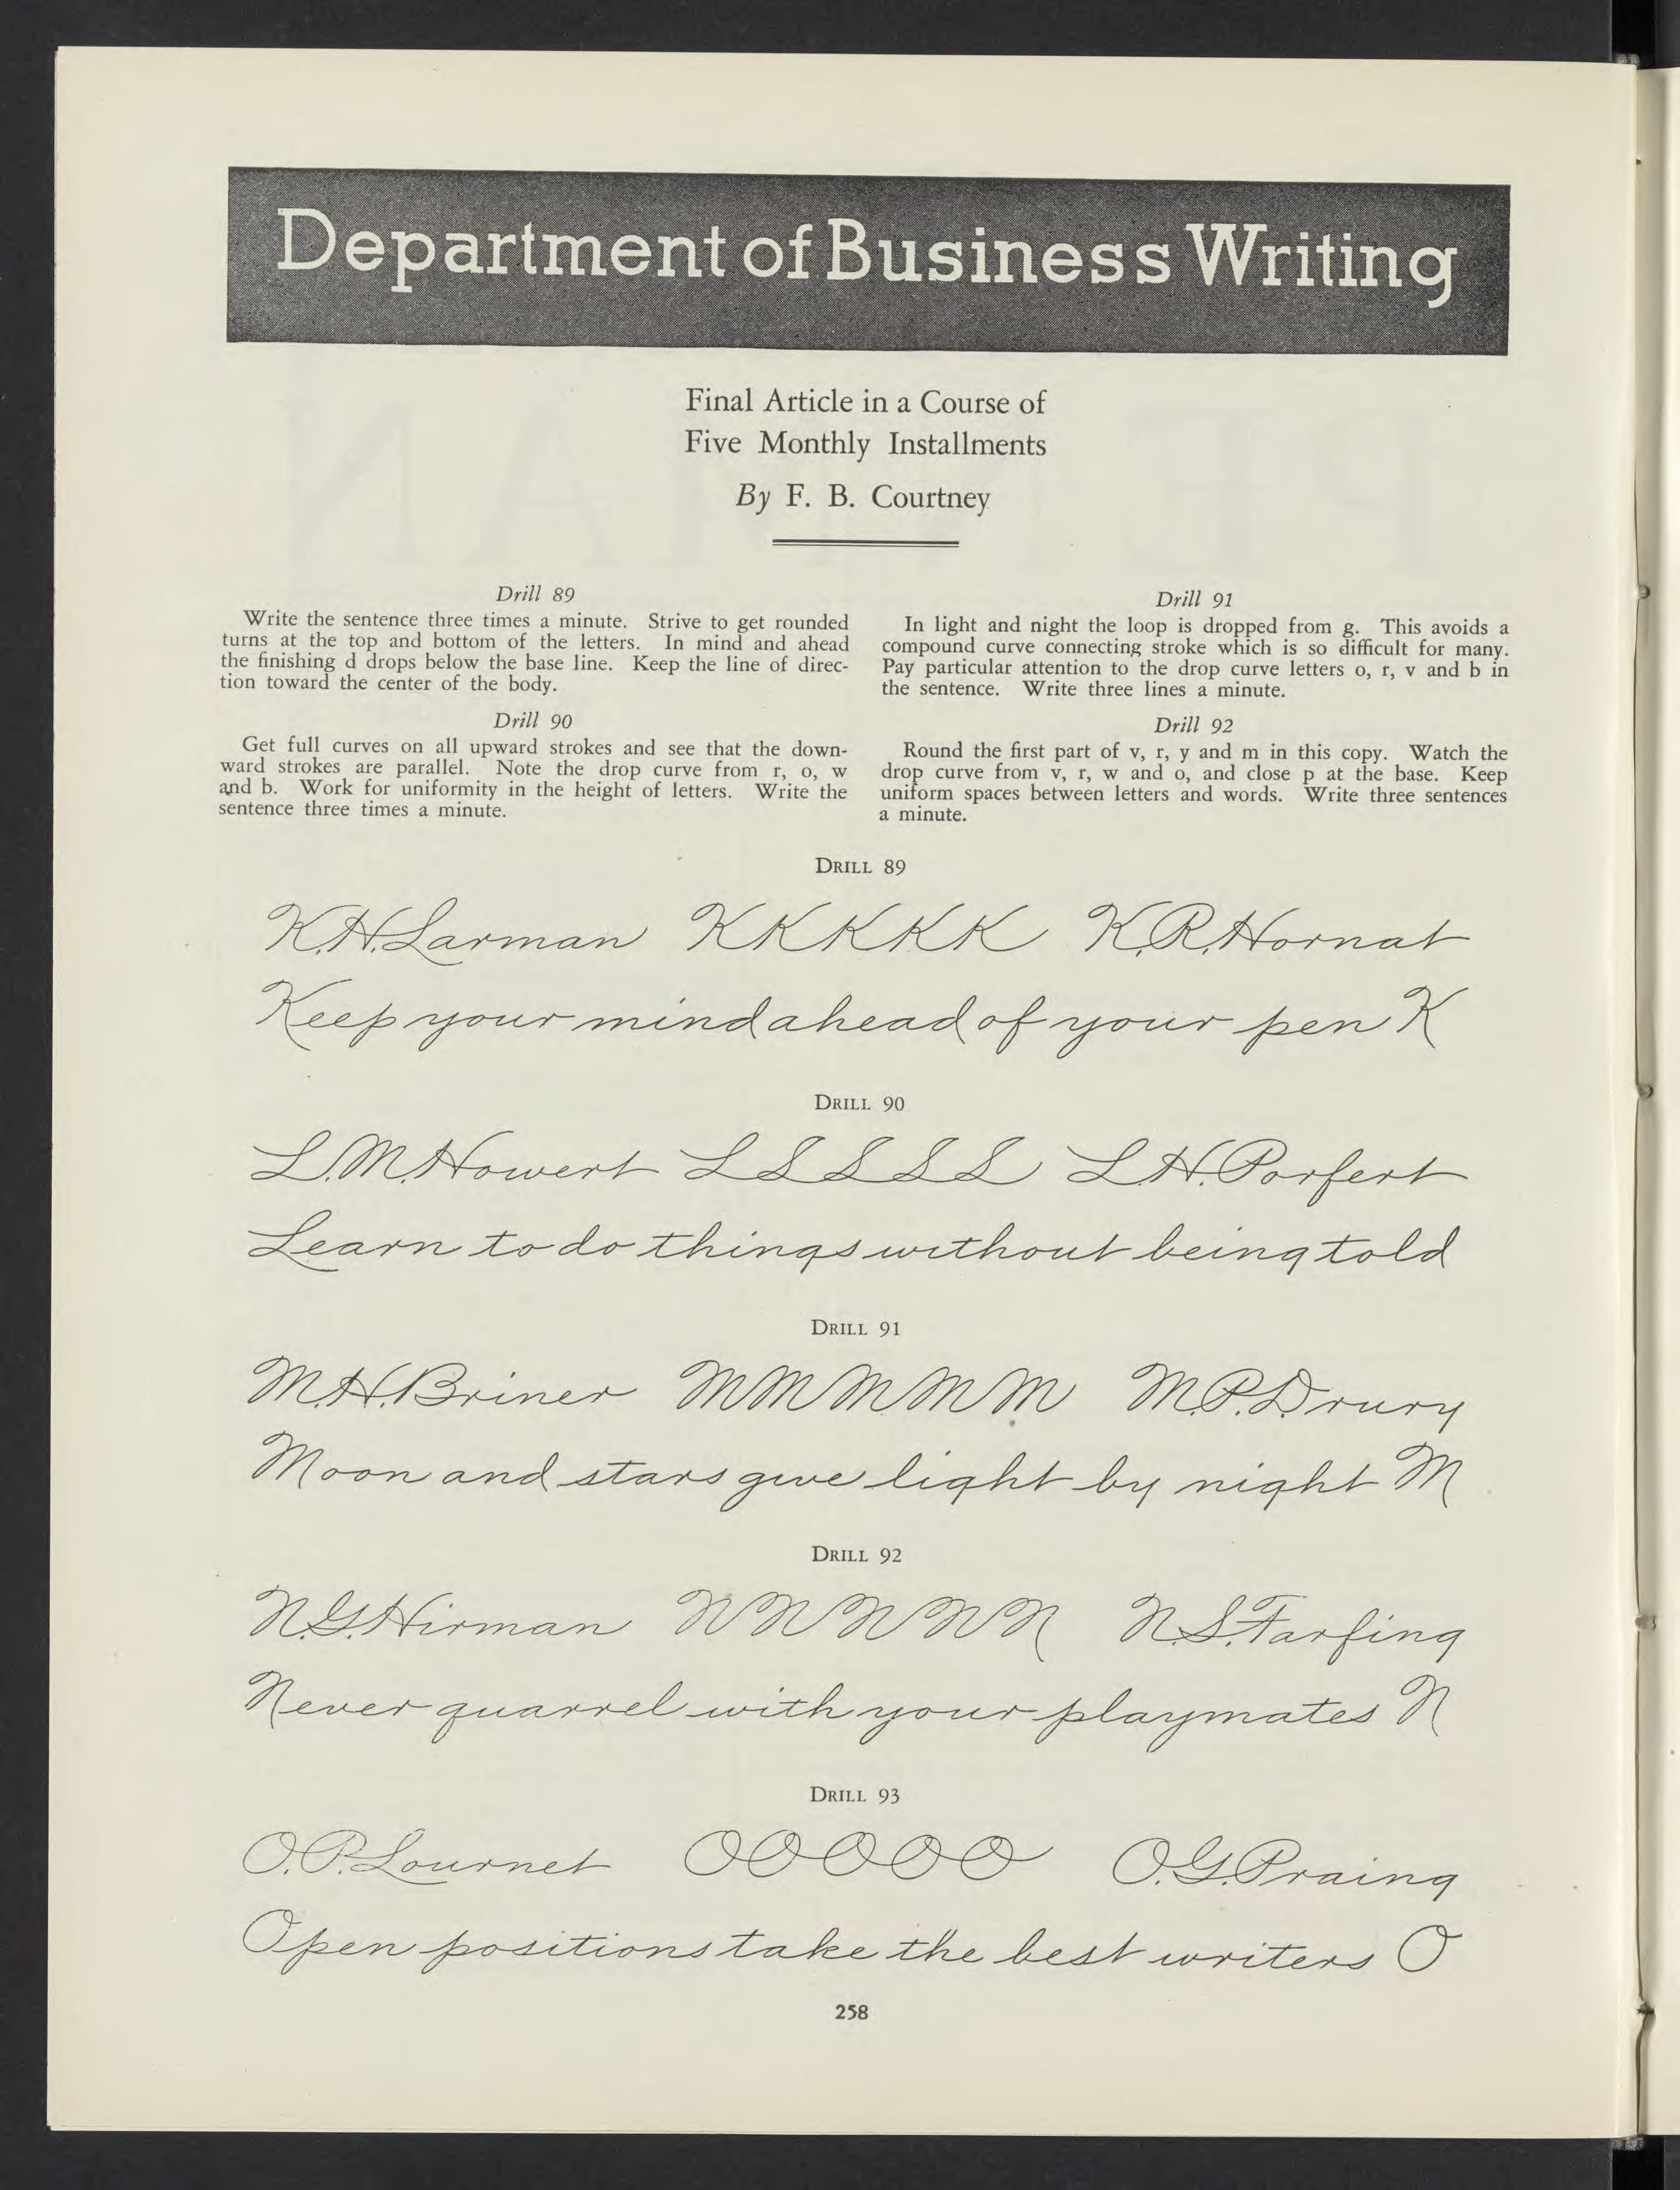 Department of Business Writing
Final Article in a Course of
Five Monthly Installments
By F. B. Courtney
Drill 89
Write the sentence three times a minute. Strive to get rounded
turns at the top and bottom of the letters. In mind and ahead
the finishing d drops below the base line. Keep the line of direc-
tion toward the center of the body.
Drill 90
Get full curves on all upward strokes and see that the down-
ward strokes are parallel. Note the drop curve from r, o, w
and b. Work for uniformity in the height of letters. Write the
sentence three times a minute.
Drill 91
In light and night the loop is dropped from g. This avoids a
compound curve connecting stroke which is so difficult for many.
Pay particular attention to the drop curve letters o, r, v and b in
the sentence. Write three lines a minute.
Drill 92
Round the first part of v, r, y and m in this copy. Watch the
drop curve from v, r, w and o, and close p at the base. Keep
uniform spaces between letters and words. Write three sentences
a minute.
DRILL 89
K.H.Larman K K K K K K.R.Hornat
Keep your mind ahead of your pen K
DRILL 90
L.M.Howert L L L L L L.H.Porfert
Learn to do things without being told
DRILL 91
M.H.Briner M M M M M M.P.Drury
Moon and stars give light by night M
DRILL 92
N.G.Hirman N N N N N N.S.Farfing
Never quarrel with your playmates N
DRILL 93
O.P.Lournet O O O O O O.G.Praing
Open positions take the best writers O
258